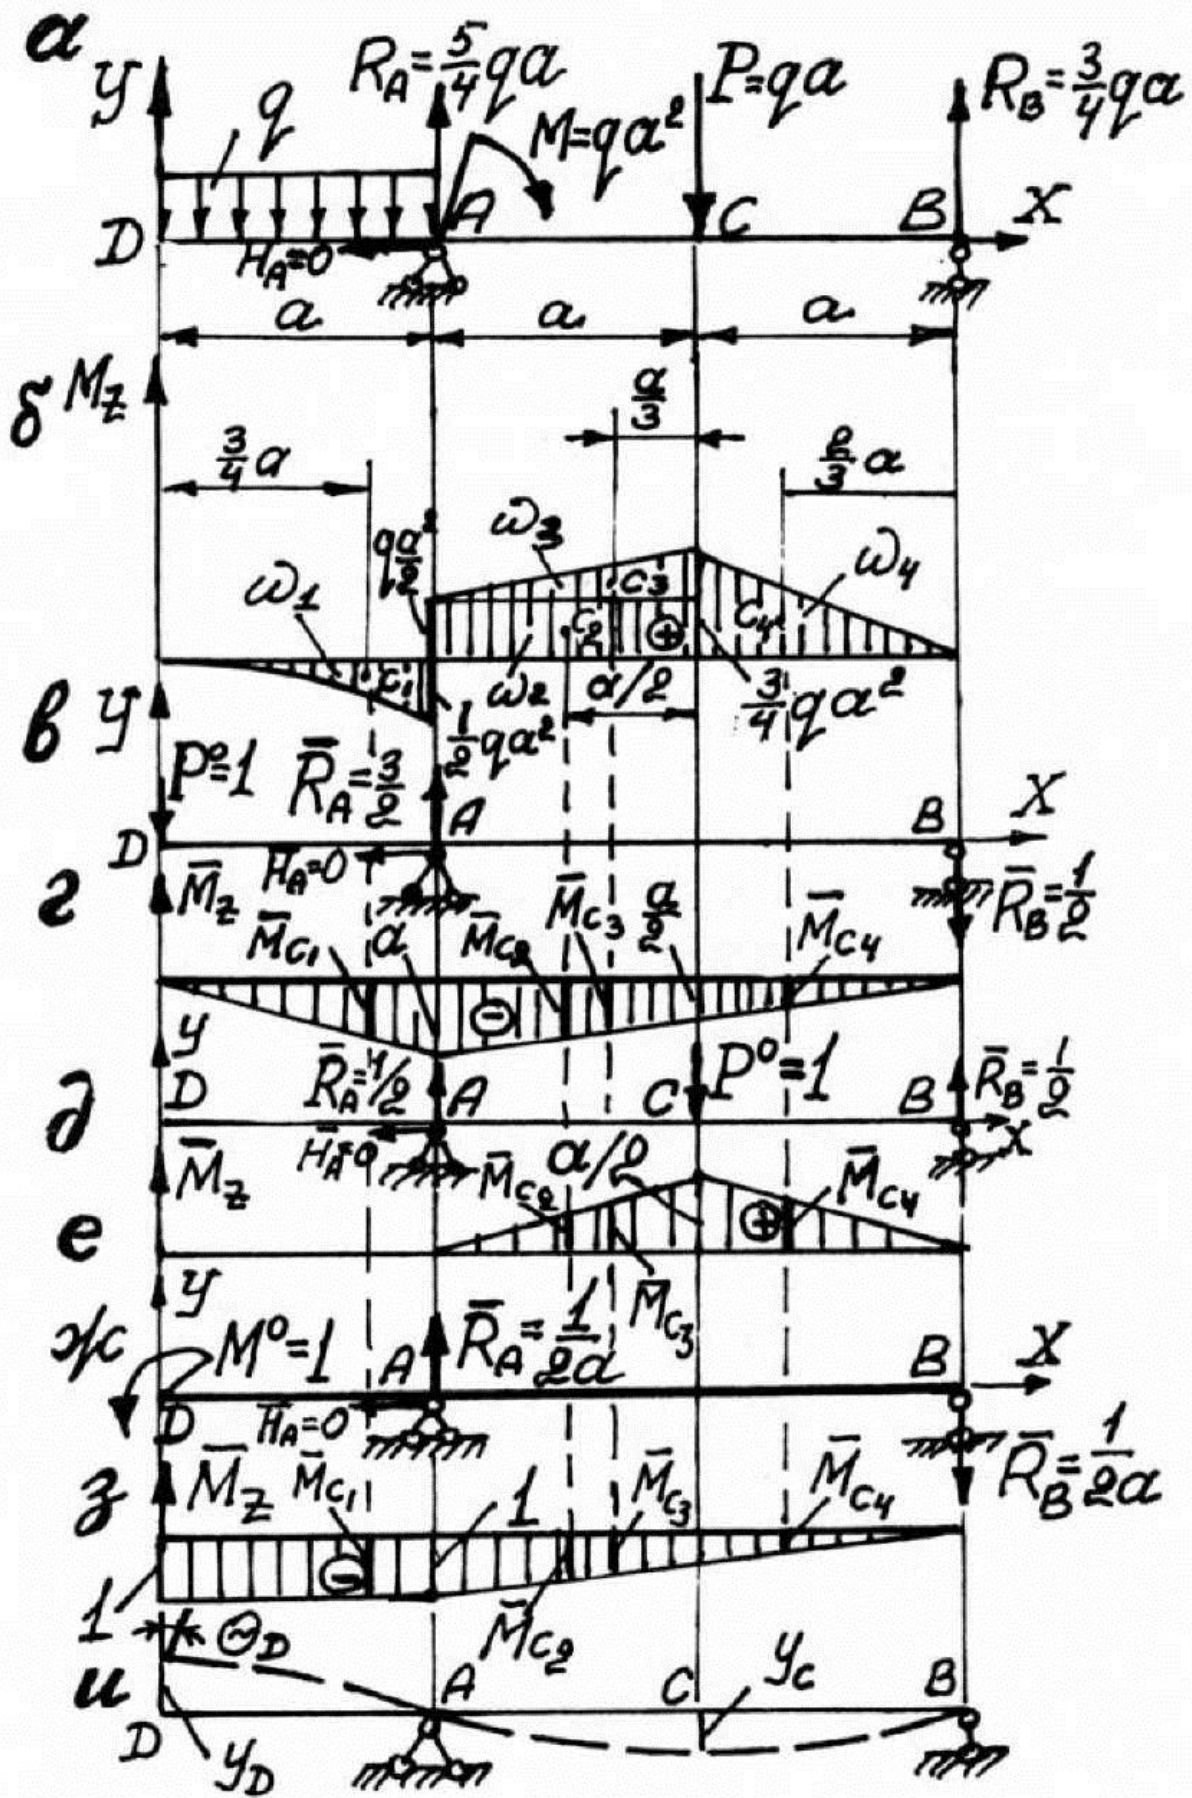 а
y q R_A=5/4qa M=qa² P=qa R_B=3/4qa
D H_A=0 A C B X
a a a
б M_z 3/4a a/3 2/3a
ω₁ qa²/2 ω₃ ω₄
C₁ C₂ C₃ ⊕ C₄
ω₂ a/2 3/4qa²
1/2qa²
в y P°=1 R̄_A=3/2 A B X
D H̄_A=0 R̄_B=1/2
г M̄_z M̄_C₁ a M̄_C₂ M̄_C₃ a/2 M̄_C₄
⊖
д y R̄_A=1/2 A C P°=1 B R̄_B=1/2
D H̄_A=0 X
е M̄_z M̄_C₂ a/2 ⊕ M̄_C₄
M̄_C₃
ж y M°=1 A R̄_A=1/2a B X
D H̄_A=0 R̄_B=1/2a
з M̄_z M̄_C₁ 1 M̄_C₃ M̄_C₄
⊖
1 Θ_D M̄_C₂
и A C y_C B
D y_D